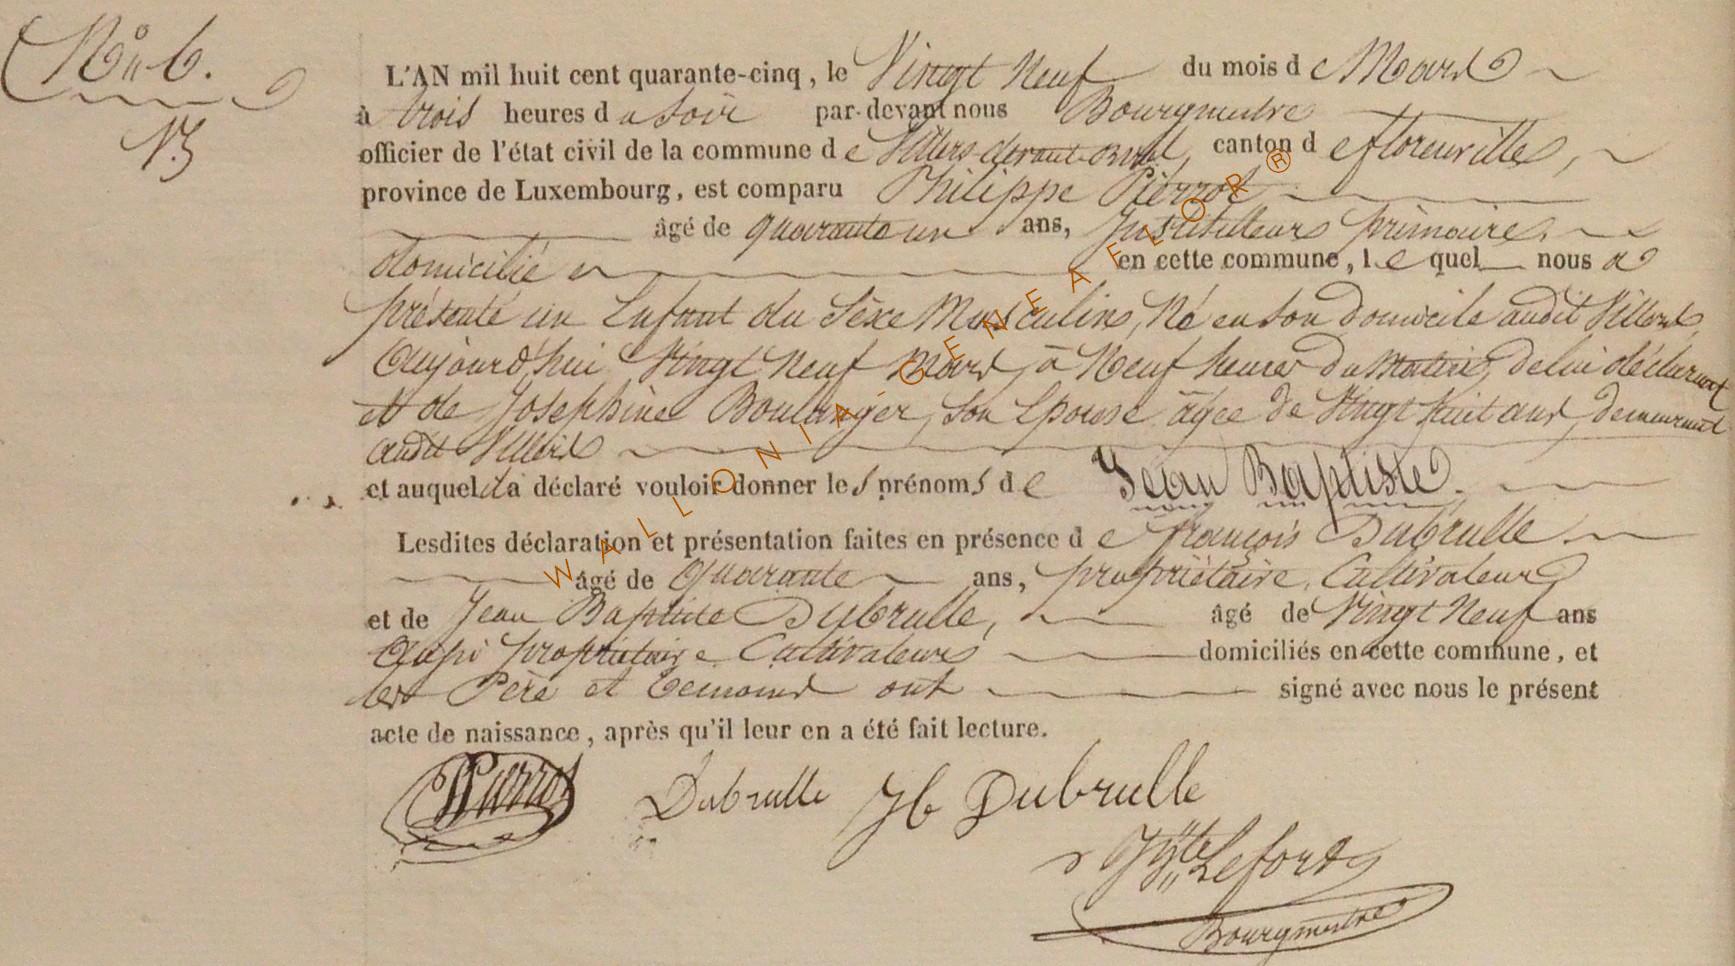 N° 6.
L'AN mil huit cent quarante-cinq, le Vingt Neuf du mois de Mars
à trois heures du Soir par-devant nous Bourgmestre
officier de l'état civil de la commune de Villers devant Orval, canton de florenville,
province de Luxembourg, est comparu Philippe Pierrot
âgé de quarante un ans, Instituteur primaire,
domicilié en cette commune, lequel nous a
présenté un Enfant du Séxe Masculin, Né en son domicile audit Villers,
Aujourd'hui Vingt Neuf Mars, à Neuf heures du matin, de lui déclarant
et de Joséphine Boulanger, son Epouse âgée de Vingt huit ans, demeurant
audit Villers
et auquel il a déclaré vouloir donner les prénoms de Jean Baptiste.
Lesdites déclaration et présentation faites en présence de françois Dubrulle.
âgé de Quarante ans, propriétaire Cultivateur
et de Jean Baptiste Dubrulle, âgé de Vingt Neuf ans
Aussi propriétaire Cultivateur domiciliés en cette commune, et
les Père et témoins ont signé avec nous le présent
acte de naissance, après qu'il leur en a été fait lecture.
Pierrot Dubrulle Jb Dubrulle
Lefort
Bourgmestre
WALLONIA GENEAFLOR®